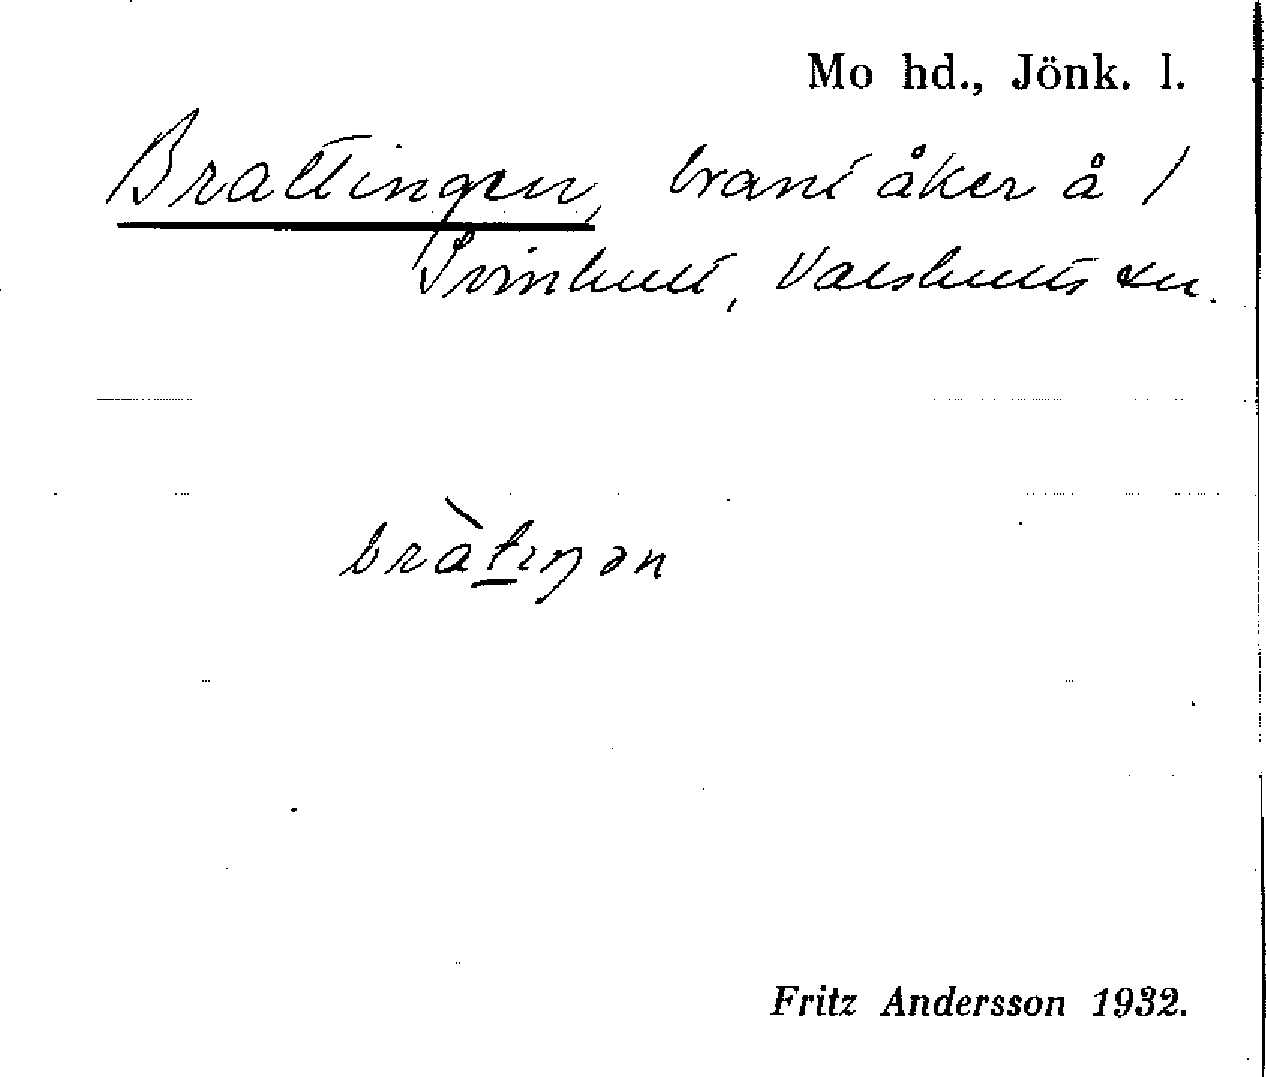 Mo hd., Jönk. l.
Brattingen, brant åker å 1
Svinhult, Valshults sn.
bràtıŋən
Fritz Andersson 1932.